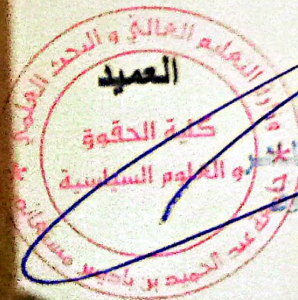 وزارة التعليم العالي و البحث العلمي
العميد
كلية الحقوق
و العلوم السياسية
جامعة عبد الحميد بن باديس مستغانم